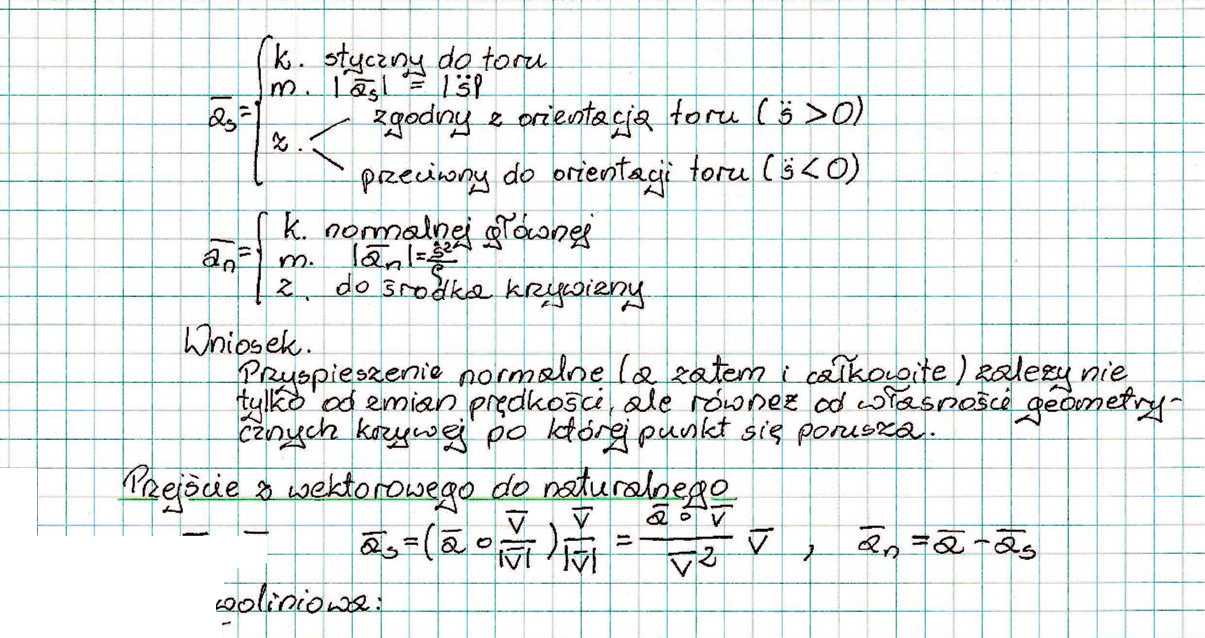 a̅ₛ = { k. styczny do toru
m. |a̅ₛ| = |s̈|
z. < zgodny z orientacją toru (s̈ > 0)
przeciwny do orientacji toru (s̈ < 0)
a̅ₙ = { k. normalnej głównej
m. |a̅ₙ| = ṡ²/ρ
z. do środka krzywizny
Wniosek.
Przyspieszenie normalne (a zatem i całkowite) zależy nie
tylko od zmian prędkości, ale również od własności geometry-
cznych krzywej po której punkt się porusza.
Przejście z wektorowego do naturalnego
a̅ₛ = (a̅ ∘ v̅/|v̅|) v̅/|v̅| = (a̅ ∘ v̅)/v̅² v̅ , a̅ₙ = a̅ - a̅ₛ
goliniowa: